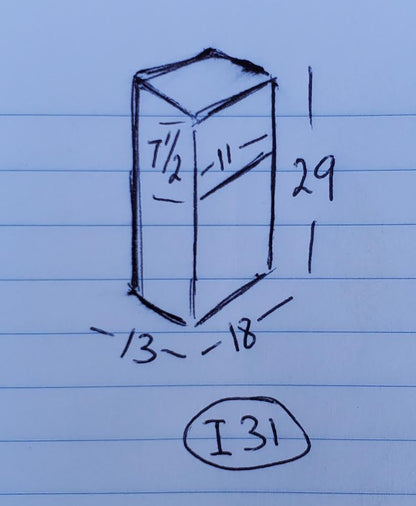 7 1/2
11
29
13
18
I31